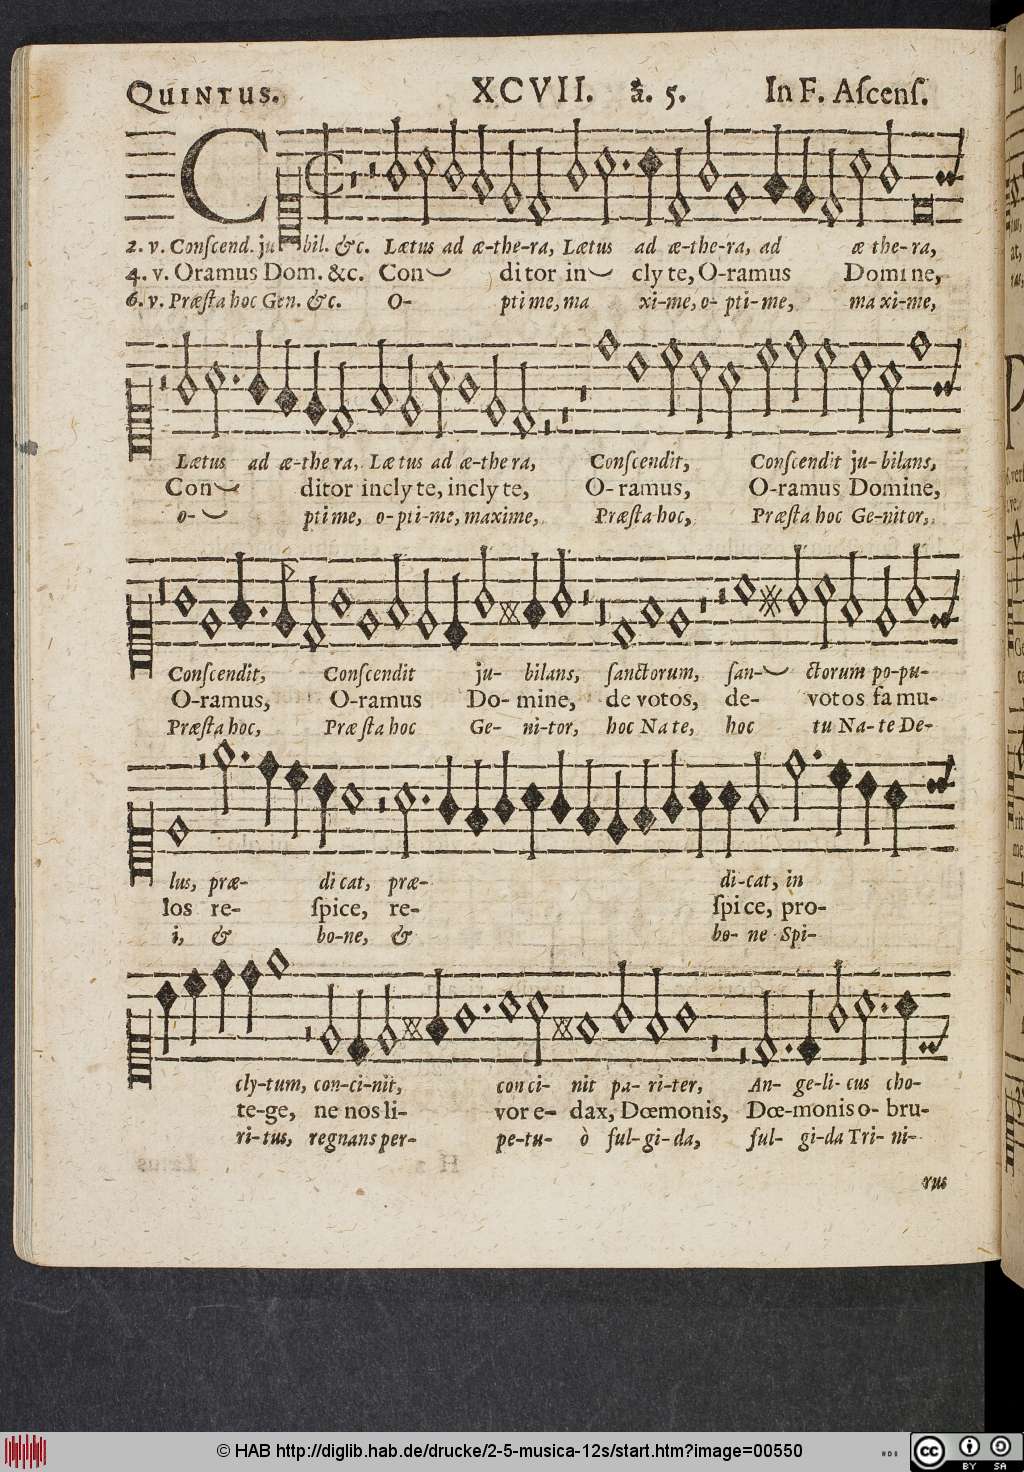 QUINTUS. XCVII. â. 5. In F. Aſcenſ.
C
2. v. Conſcend. ju bil. &c. Lætus ad æ-the-ra, Lætus ad æ-the-ra, ad æ the-ra,
4. v. Oramus Dom. &c. Con ditor in clyte, O-ramus Domine,
6. v. Præſta hoc Gen. &c. O- ptime, ma xi-me, o- pti-me, ma xi-me,
Lætus ad æ-the ra, Lætus ad æ-the ra, Conſcendit, Conſcendit ju-bilans,
Con ditor inclyte, inclyte, O-ramus, O-ramus Domine,
o- ptime, o-pti-me, maxime, Præſta hoc, Præſta hoc Ge-nitor,
Conſcendit, Conſcendit ju- bilans, ſanctorum, ſan- ctorum po-pu-
O-ramus, O-ramus Do-mine, de votos, de- votos famu-
Præſta hoc, Præſta hoc Ge- ni-tor, hoc Nate, hoc tu Na-te De-
lus, præ- dicat, præ- di-cat, in
los re- ſpice, re- ſpice, pro-
i, & bo-ne, & bo- ne Spi-
cly-tum, con-ci-nit, con ci- nit pa-ri-ter, An-ge-li-cus cho-
te-ge, ne nos li- vor e-dax, Dœmonis, Dœ-monis o-bru-
ri-tus, regnans per- pe-tu-ò ful-gi-da, ful-gi-da Tri-ni-
rus
© HAB http://diglib.hab.de/drucke/2-5-musica-12s/start.htm?image=00550
cc BY SA